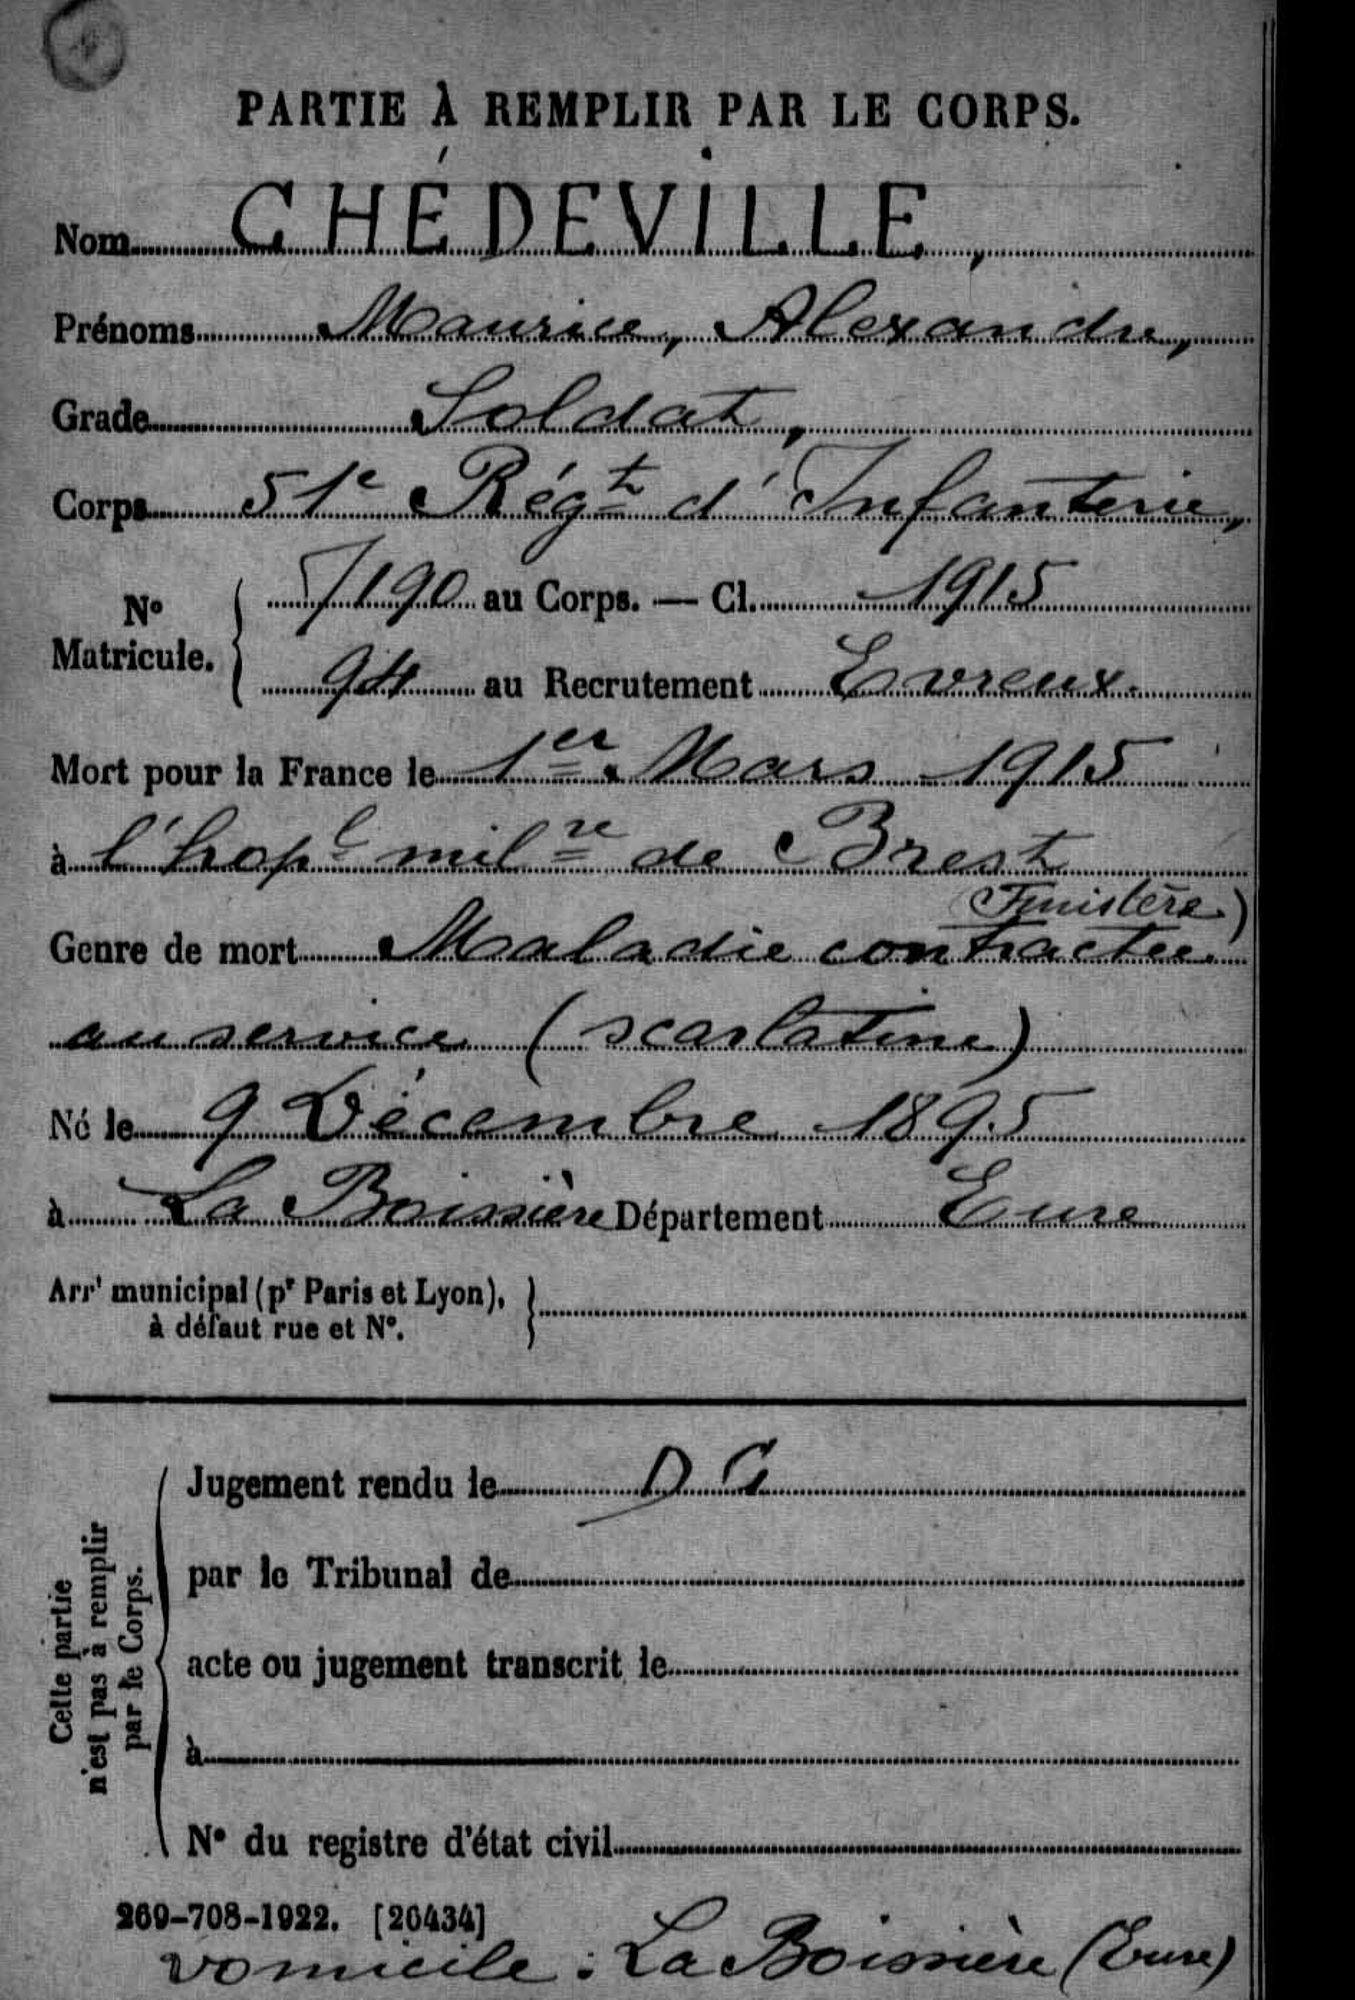 PARTIE À REMPLIR PAR LE CORPS.
Nom CHÉDEVILLE,
Prénoms Maurice, Alexandre,
Grade Soldat,
Corps 51e Régt d'Infanterie,
No Matricule. { 7190 au Corps. — Cl. 1915
94 au Recrutement Evreux.
Mort pour la France le 1er Mars 1915
à l'hopl milre de Brest
Finistère)
Genre de mort Maladie contractée
au service (scarlatine)
Né le 9 Décembre 1895
à La Boissière Département Eure
Arrt municipal (pr Paris et Lyon),
à défaut rue et No.
Cette partie
n'est pas à remplir
par le Corps.
Jugement rendu le DG
par le Tribunal de
acte ou jugement transcrit le
à
No du registre d'état civil
269-708-1922. [20434]
Domicile : La Boissière (Eure)